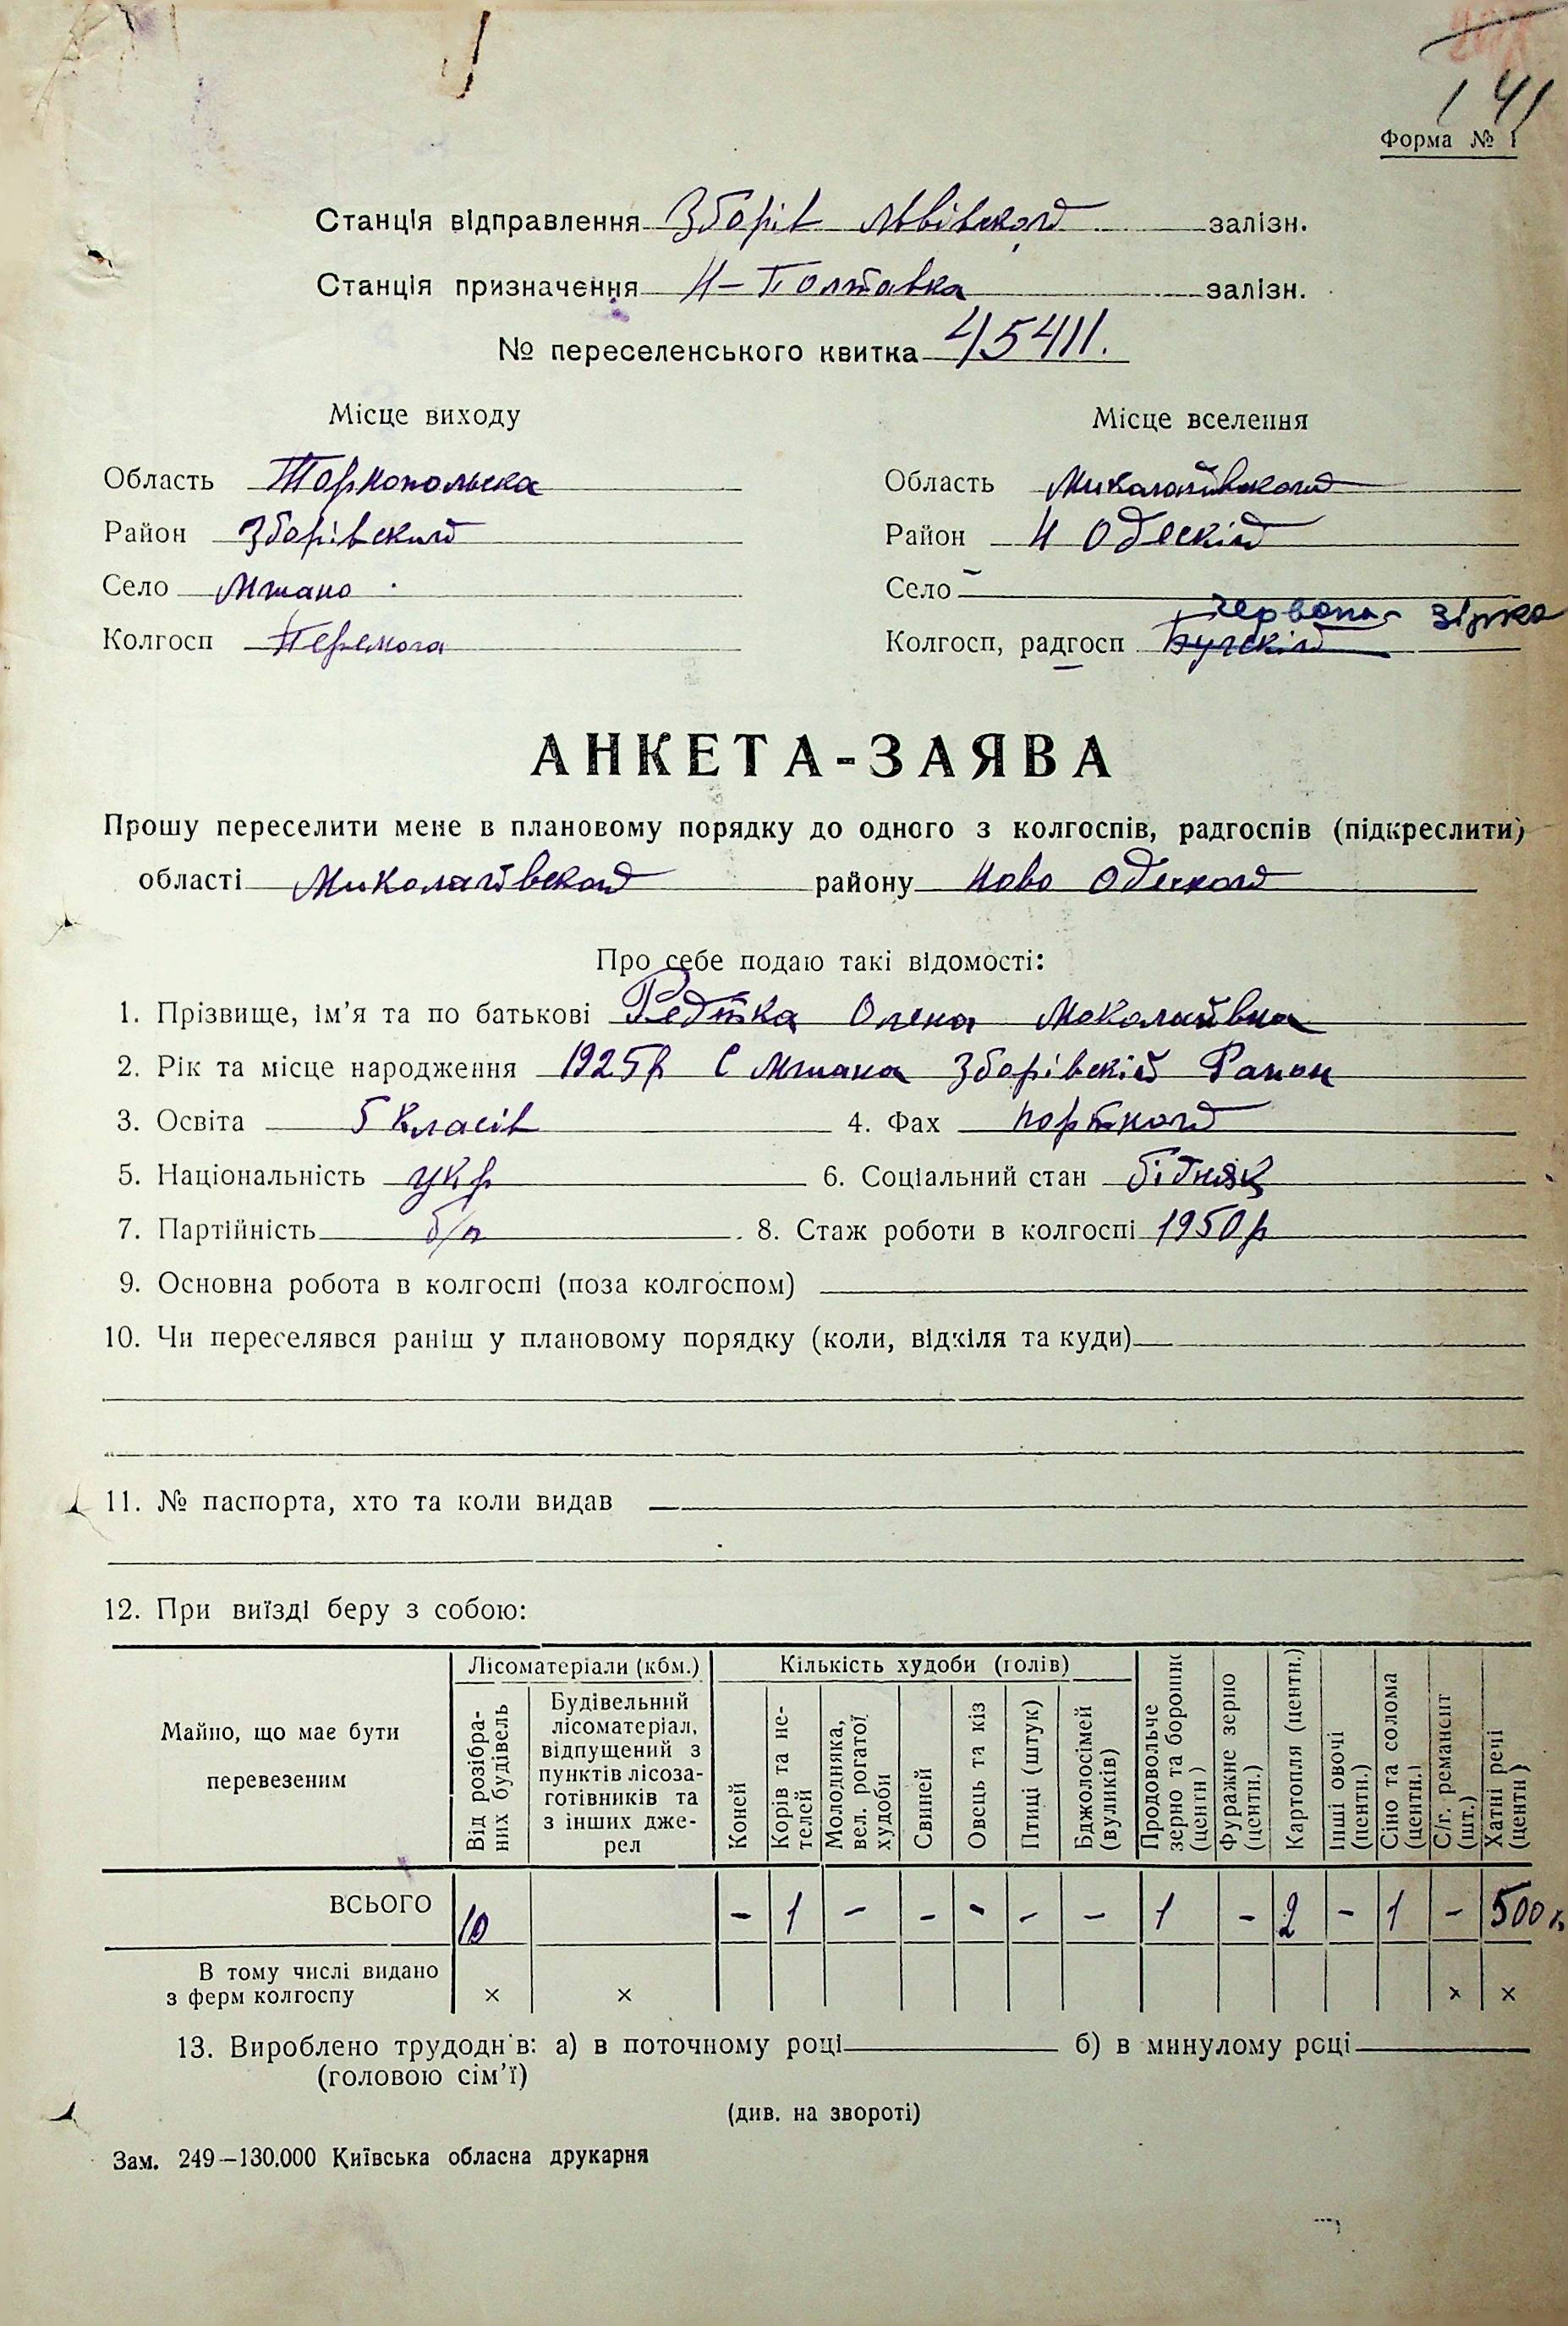 141
Форма № 1
Станція відправлення Зборів Львівської залізн.
Станція призначення Н-Полтавка залізн.
№ переселенського квитка 45411.
Місце виходу Місце вселення
Область Тернопольска Область Миколаївской
Район Зборівский Район Н Одескій
Село Мшана Село -
червона зірка
Колгосп Перемога Колгосп, радгосп Бугскій
АНКЕТА-ЗАЯВА
Прошу переселити мене в плановому порядку до одного з колгоспів, радгоспів (підкреслити)
області Миколаївской району Ново Одеской
Про себе подаю такі відомості:
1. Прізвище, ім'я та по батькові Редька Олена Миколаївна
2. Рік та місце народження 1925р С Мшана Зборівскій Район
3. Освіта 5 класів 4. Фах
5. Національність укр 6. Соціальний стан бідняк
7. Партійність б/п 8. Стаж роботи в колгоспі 1950р
9. Основна робота в колгоспі (поза колгоспом)
10. Чи переселявся раніш у плановому порядку (коли, відкіля та куди)
11. № паспорта, хто та коли видав —
12. При виїзді беру з собою:
Майно, що має бути перевезеним
Лісоматеріали (кбм.)
Від розібра-
них будівель
Будівельний
лісоматеріал,
відпущений з
пунктів лісоза-
готівників та
з інших дже-
рел
Кількість худоби (голів)
Коней
Корів та не-
телей
Молодняка,
вел. рогатої
худоби
Свиней
Овець та кіз
Птиці (штук)
Бджолосімей
(вуликів)
Продовольче
зерно та борошно
(центн)
Фуражне зерно
(центн.)
Картопля (центн.)
Інші овочі
(центн.)
Сіно та солома
(центн.)
С/г. реманент
(шт.)
Хатні речі
(центн)
ВСЬОГО 10 - 1 - - - - - 1 - 2 - 1 - 500 к
В тому числі видано
з ферм колгоспу × × × ×
13. Вироблено трудоднів: а) в поточному році б) в минулому році
(головою сім'ї)
(див. на звороті)
Зам. 249—130.000 Київська обласна друкарня